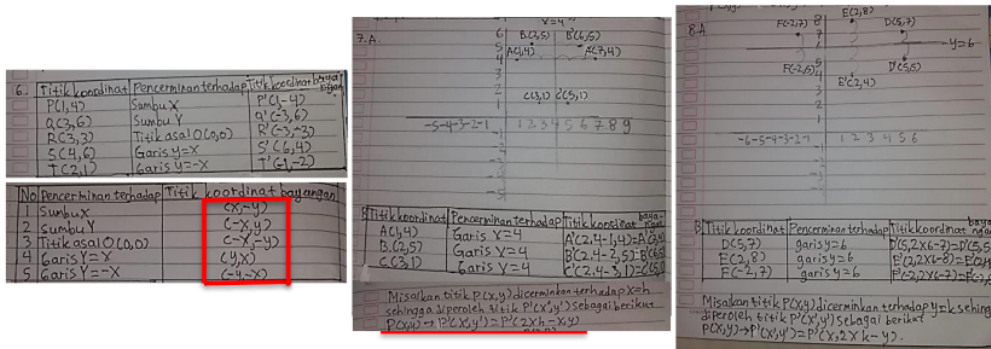 6. Titik koordinat Pencerminan terhadap Titik koordinat bayangan
P(1,4) Sumbu X P'(1,-4)
Q(3,6) Sumbu Y Q'(-3,6)
R(3,3) Titik asal O(0,0) R'(-3,-3)
S(4,6) Garis y=x S'(6,4)
T(2,1) Garis y=-x T'(-1,-2)
No Pencerminan terhadap Titik koordinat bayangan
1 Sumbu X (x,-y)
2 Sumbu Y (-x,y)
3 Titik asal O(0,0) (-x,-y)
4 Garis Y=X (y,x)
5 Garis Y=-X (-y,-x)
7.A.
X=4
6 B(2,5) B'(6,5)
5 A(1,4) A'(7,4)
4
3
2 C(3,1) C'(5,1)
1
-5-4-3-2-1 1 2 3 4 5 6 7 8 9
B Titik koordinat Pencerminan terhadap Titik koordinat bayangan
A(1,4) Garis X=4 A'(2.4-1,4)=A'(7,4)
B.(2,5) Garis X=4 B'(2.4-2,5)=B'(6,5)
C.(3,1) Garis X=4 C'(2.4-3,1)=C'(5,1)
Misalkan titik P(x,y) dicerminkan terhadap x=h
sehingga diperoleh titik P'(x',y') sebagai berikut
P(x,y)→P'(x',y')=P'(2xh-x,y)
8.A
E(2,8)
F(-2,7) 8 D(5,7)
7
y=6
F(-2,5) 5 D'(5,5)
4 E'(2,4)
3
2
-6-5-4-3-2-1 1 2 3 4 5 6
B Titik koordinat Pencerminan terhadap Titik koordinat bayangan
D(5,7) garis y=6 D'(5,2x6-7)=D'(5,5
E(2,8) garis y=6 E'(2,2x6-8)=E'(2,4
F(-2,7) garis y=6 F'(-2,2x6-7)=F'(-2,5
Misalkan titik P(x,y) dicerminkan terhadap y=k sehing
diperoleh titik P'(x',y') sebagai berikut
P(x,y)→P'(x',y')=P'(x,2xk-y).